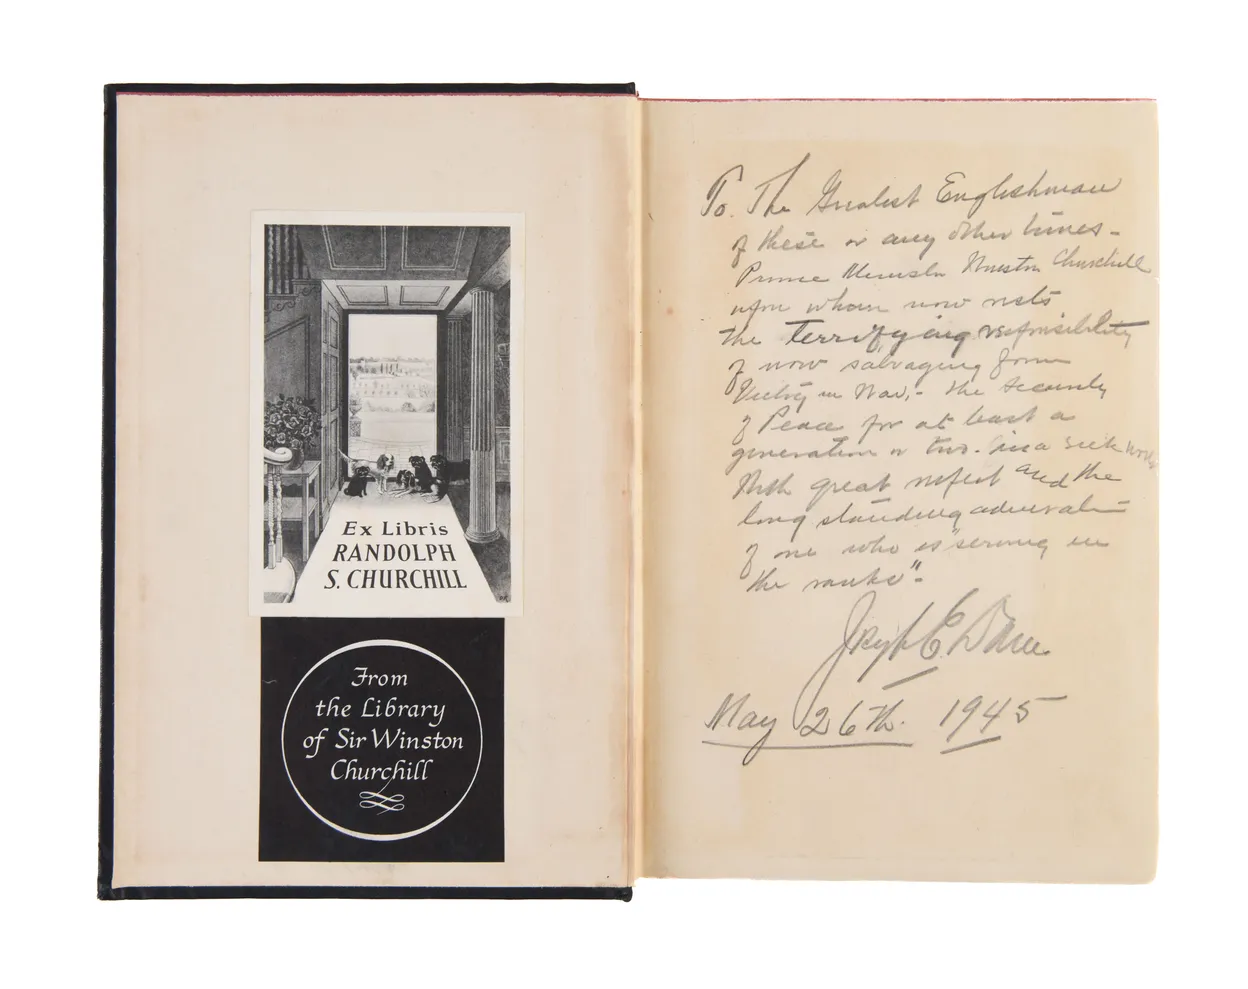 Ex Libris
RANDOLPH
S. CHURCHILL
From
the Library
of Sir Winston
Churchill
To. The Greatest Englishman
of these or any other times -
Prime Minister Winston Churchill
upon whom now rests
the terrifying responsibility
of now salvaging from
Victory in War, - the security
of Peace for at least a
generation or two. in a sick world
With great respect and the
long standing admiration
of one who is "serving in
the ranks".
Joseph E.
May 26th. 1945